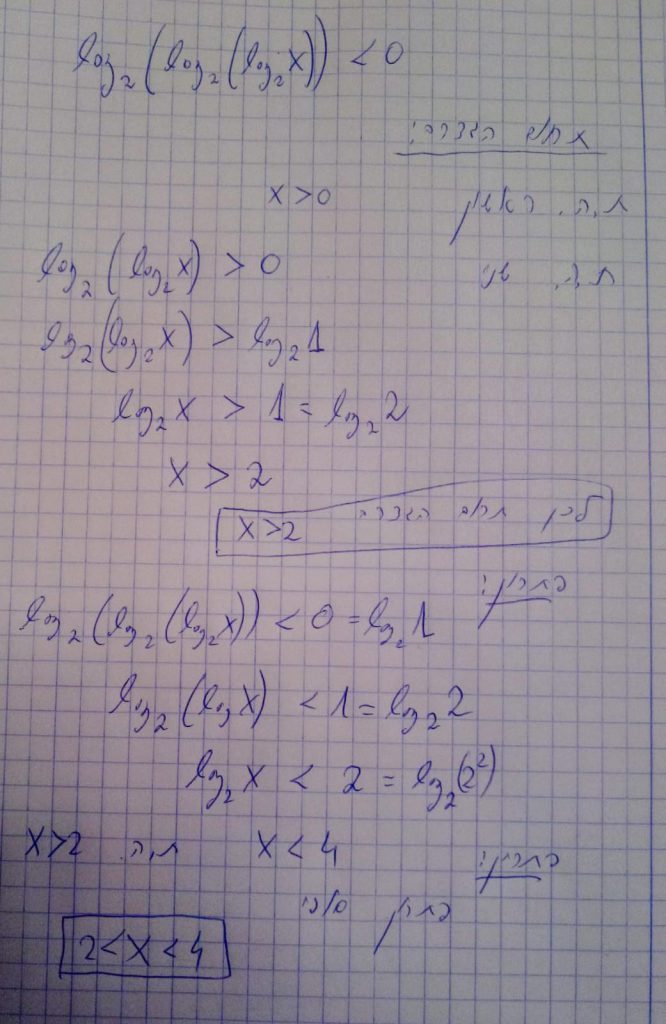 log₂(log₂(log₂x)) < 0
תחום הגדרה:
ת.ה. ראשון x>0
ת.ה. שני log₂(log₂x) > 0
log₂(log₂x) > log₂1
log₂x > 1 = log₂2
x > 2
לכן תחום הגדרה x>2
פתרון:
log₂(log₂(log₂x)) < 0 = log₂1
log₂(logx) < 1 = log₂2
log₂x < 2 = log₂(2²)
פתרון: x < 4 ת.ה. x>2
פתרון סופי
2<x<4